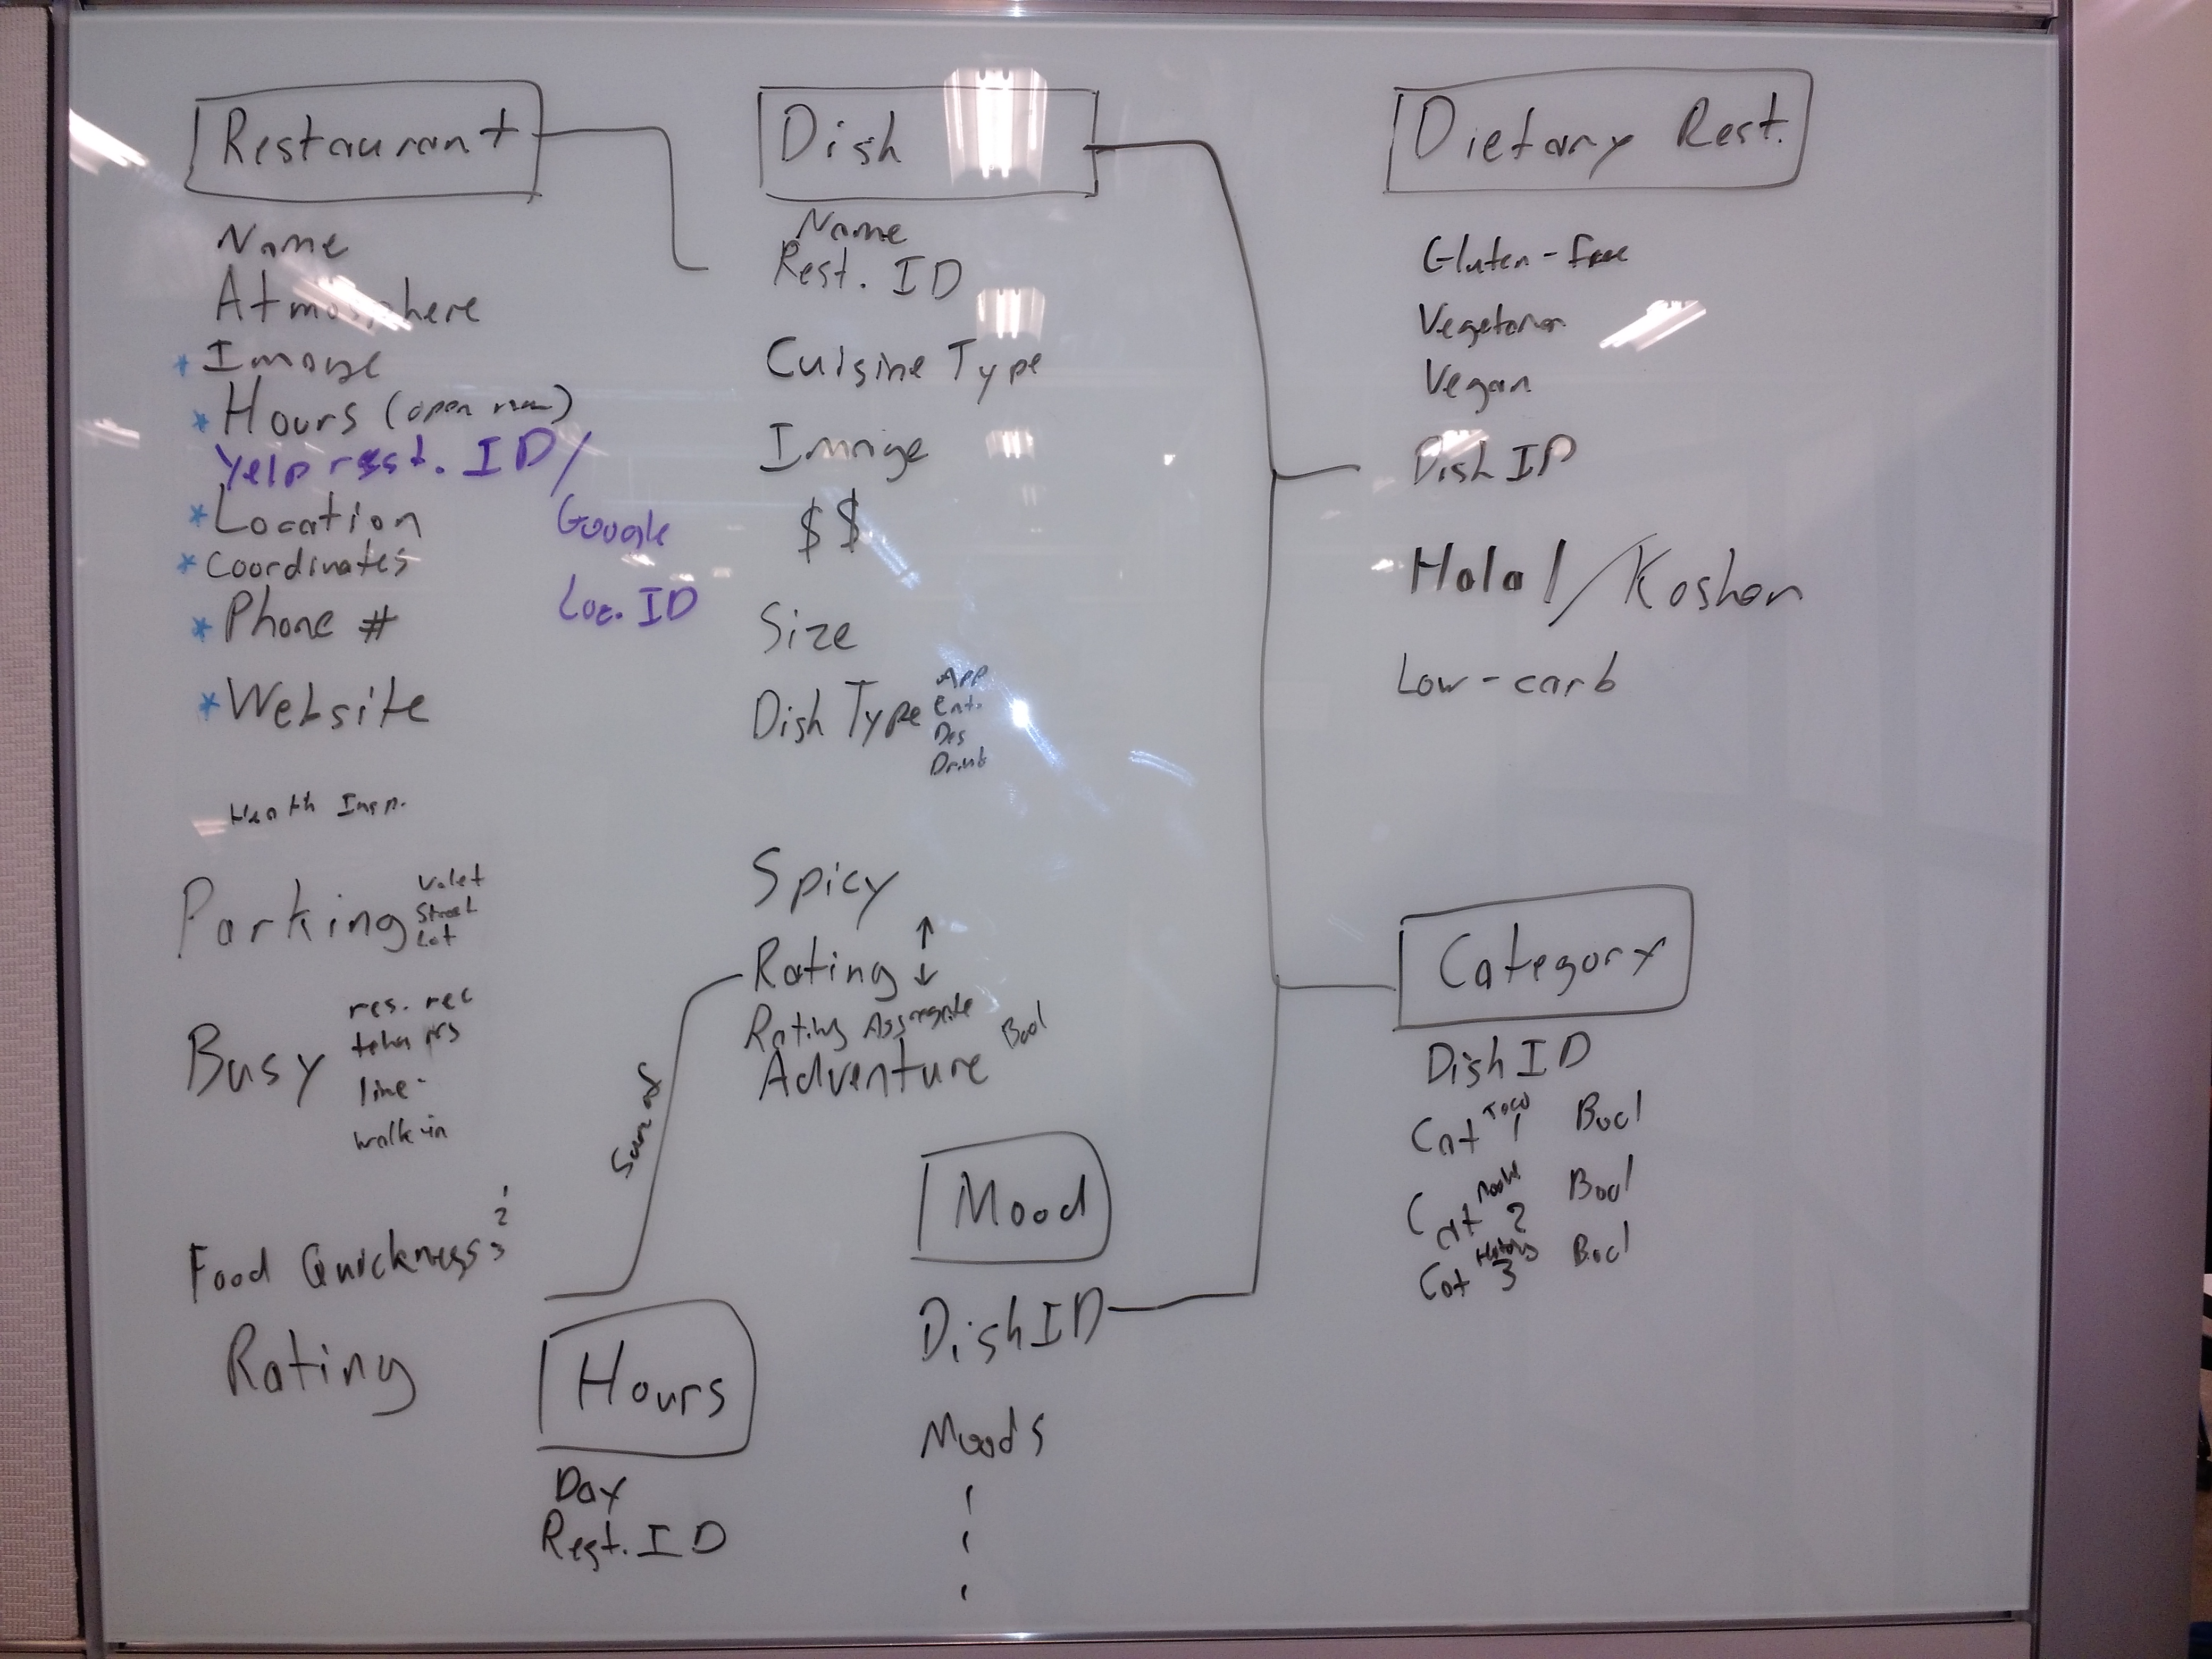 Restaurant
Name
Atmosphere
* Image
* Hours (open now)
Yelp rest. ID /
Google
Loc. ID
* Location
* Coordinates
* Phone #
* Website
Health Insp.
Parking
Valet
Street
Lot
Busy
res. rec
line
walk-in
Food Quickness
1
2
3
Rating
Sum of
Hours
Day
Rest. ID
Dish
Name
Rest. ID
Cuisine Type
Image
$$
Size
Dish Type
App
Ent.
Des
Drink
Spicy
Rating ↑↓
Rating Aggregate
Adventure Bool
Mood
Dish ID
Moods
Dietary Rest.
Gluten-free
Vegetarian
Vegan
Dish ID
Halal/Kosher
Low-carb
Category
Dish ID
Cat 1 Taco Bool
Cat 2 Bool
Cat 3 Bool